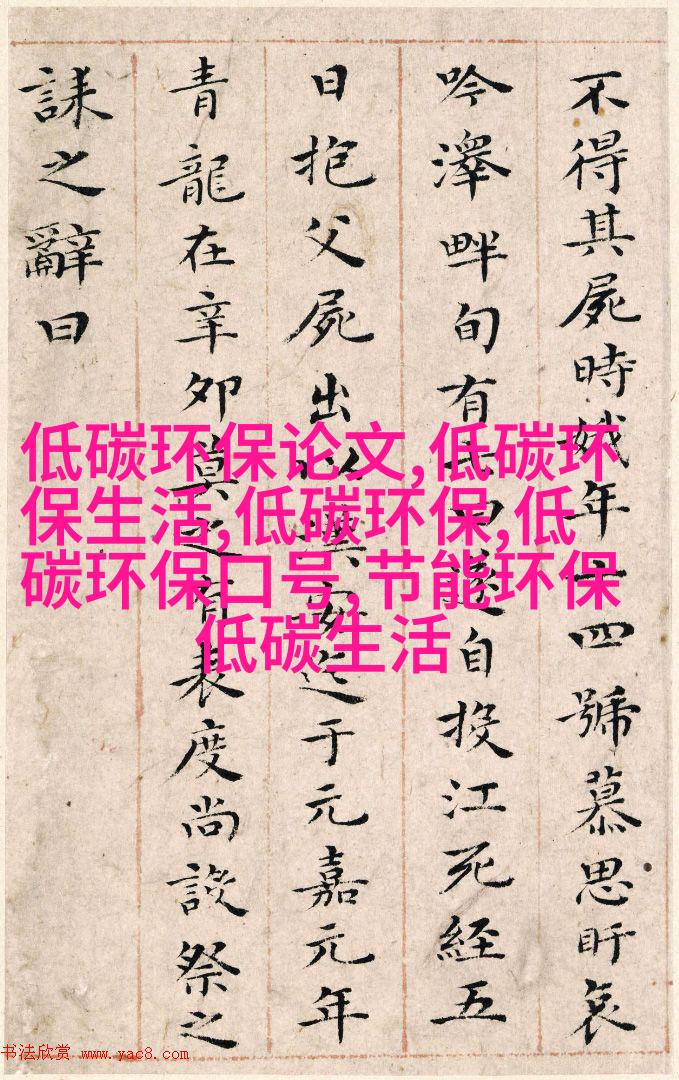 不得其屍時娥年十四號慕思盱哀
吟澤畔旬有七日遂自投江死經五
日抱父屍出以漢安迄于元嘉元年
青龍在辛卯莫之有表度尚設祭之
誄之辭曰
低碳环保论文,低碳环
保生活,低碳环保,低
碳环保口号,节能环保
低碳生活
书法欣赏 www.yac8.com